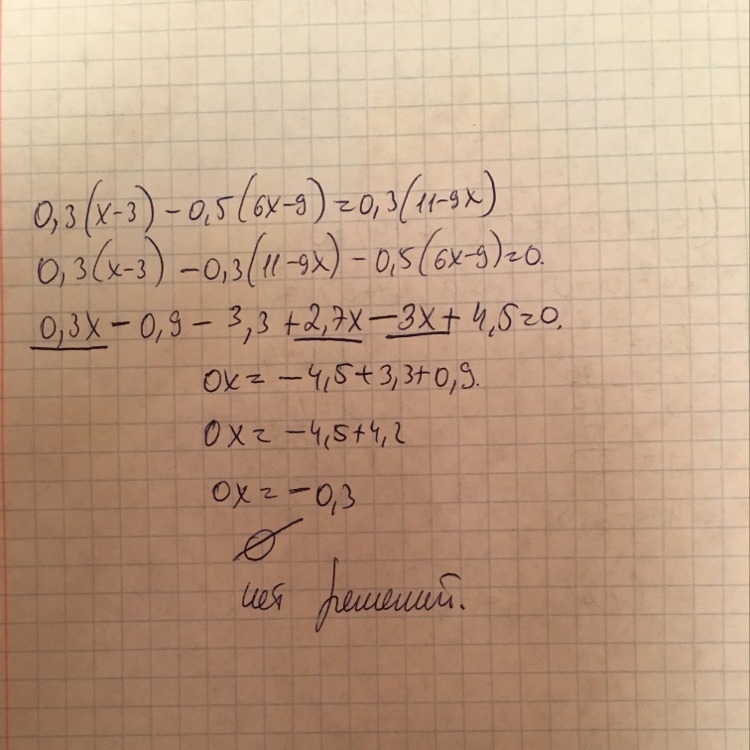 0,3(x-3)-0,5(6x-9)=0,3(11-9x)
0,3(x-3)-0,3(11-9x)-0,5(6x-9)=0.
0,3x-0,9-3,3+2,7x-3x+4,5=0.
0x=-4,5+3,3+0,9.
0x=-4,5+4,2
0x=-0,3
∅
нет решений.